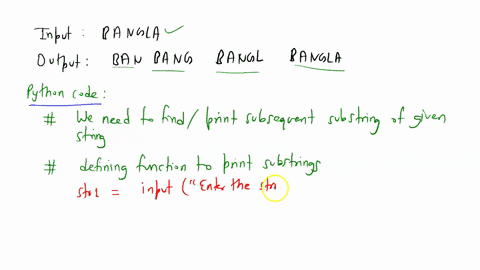 Input : BANGLA ✓
Output : BAN BANG BANGL BANGLA
Python code :
# We need to find / print subsequent substring of given
string
# defining function to print substrings
str1 = input ("Enter the stri